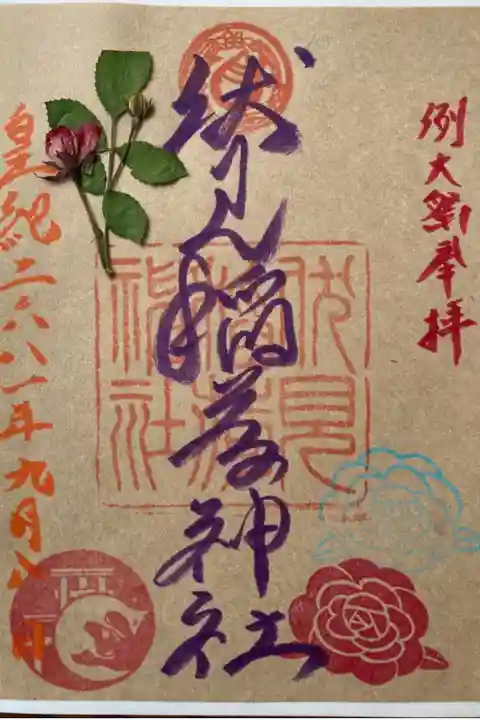 例大祭奉拝
伏見稲荷神社
伏見
稲荷
神社
皇紀二六八一年九月八日